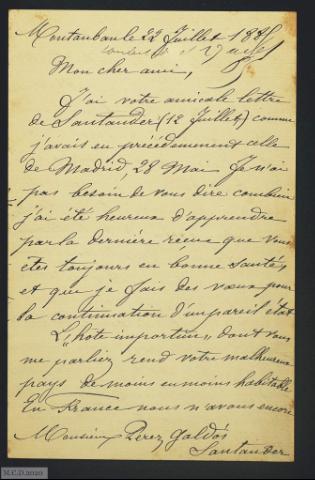 Montauban le 22 Juillet 188
Mon cher ami,
J'ai votre amicale lettre
de Santander (12 Juillet) comme
j'avais eu précédemment celle
de Madrid, 28 Mai. Je n'ai
pas besoin de vous dire combien
j'ai été heureux d'apprendre
par la dernière réçue que vous
êtes toujours en bonne santés
et que je fais des vœux pour
la continuation d'un pareil état
L'"hôte importun" dont vous
me parliez rend votre malheureux
pays de moins en moins habitable
En France nous n'avons encore
Monsieur Perez Galdós
Santander
M.C.D.2020